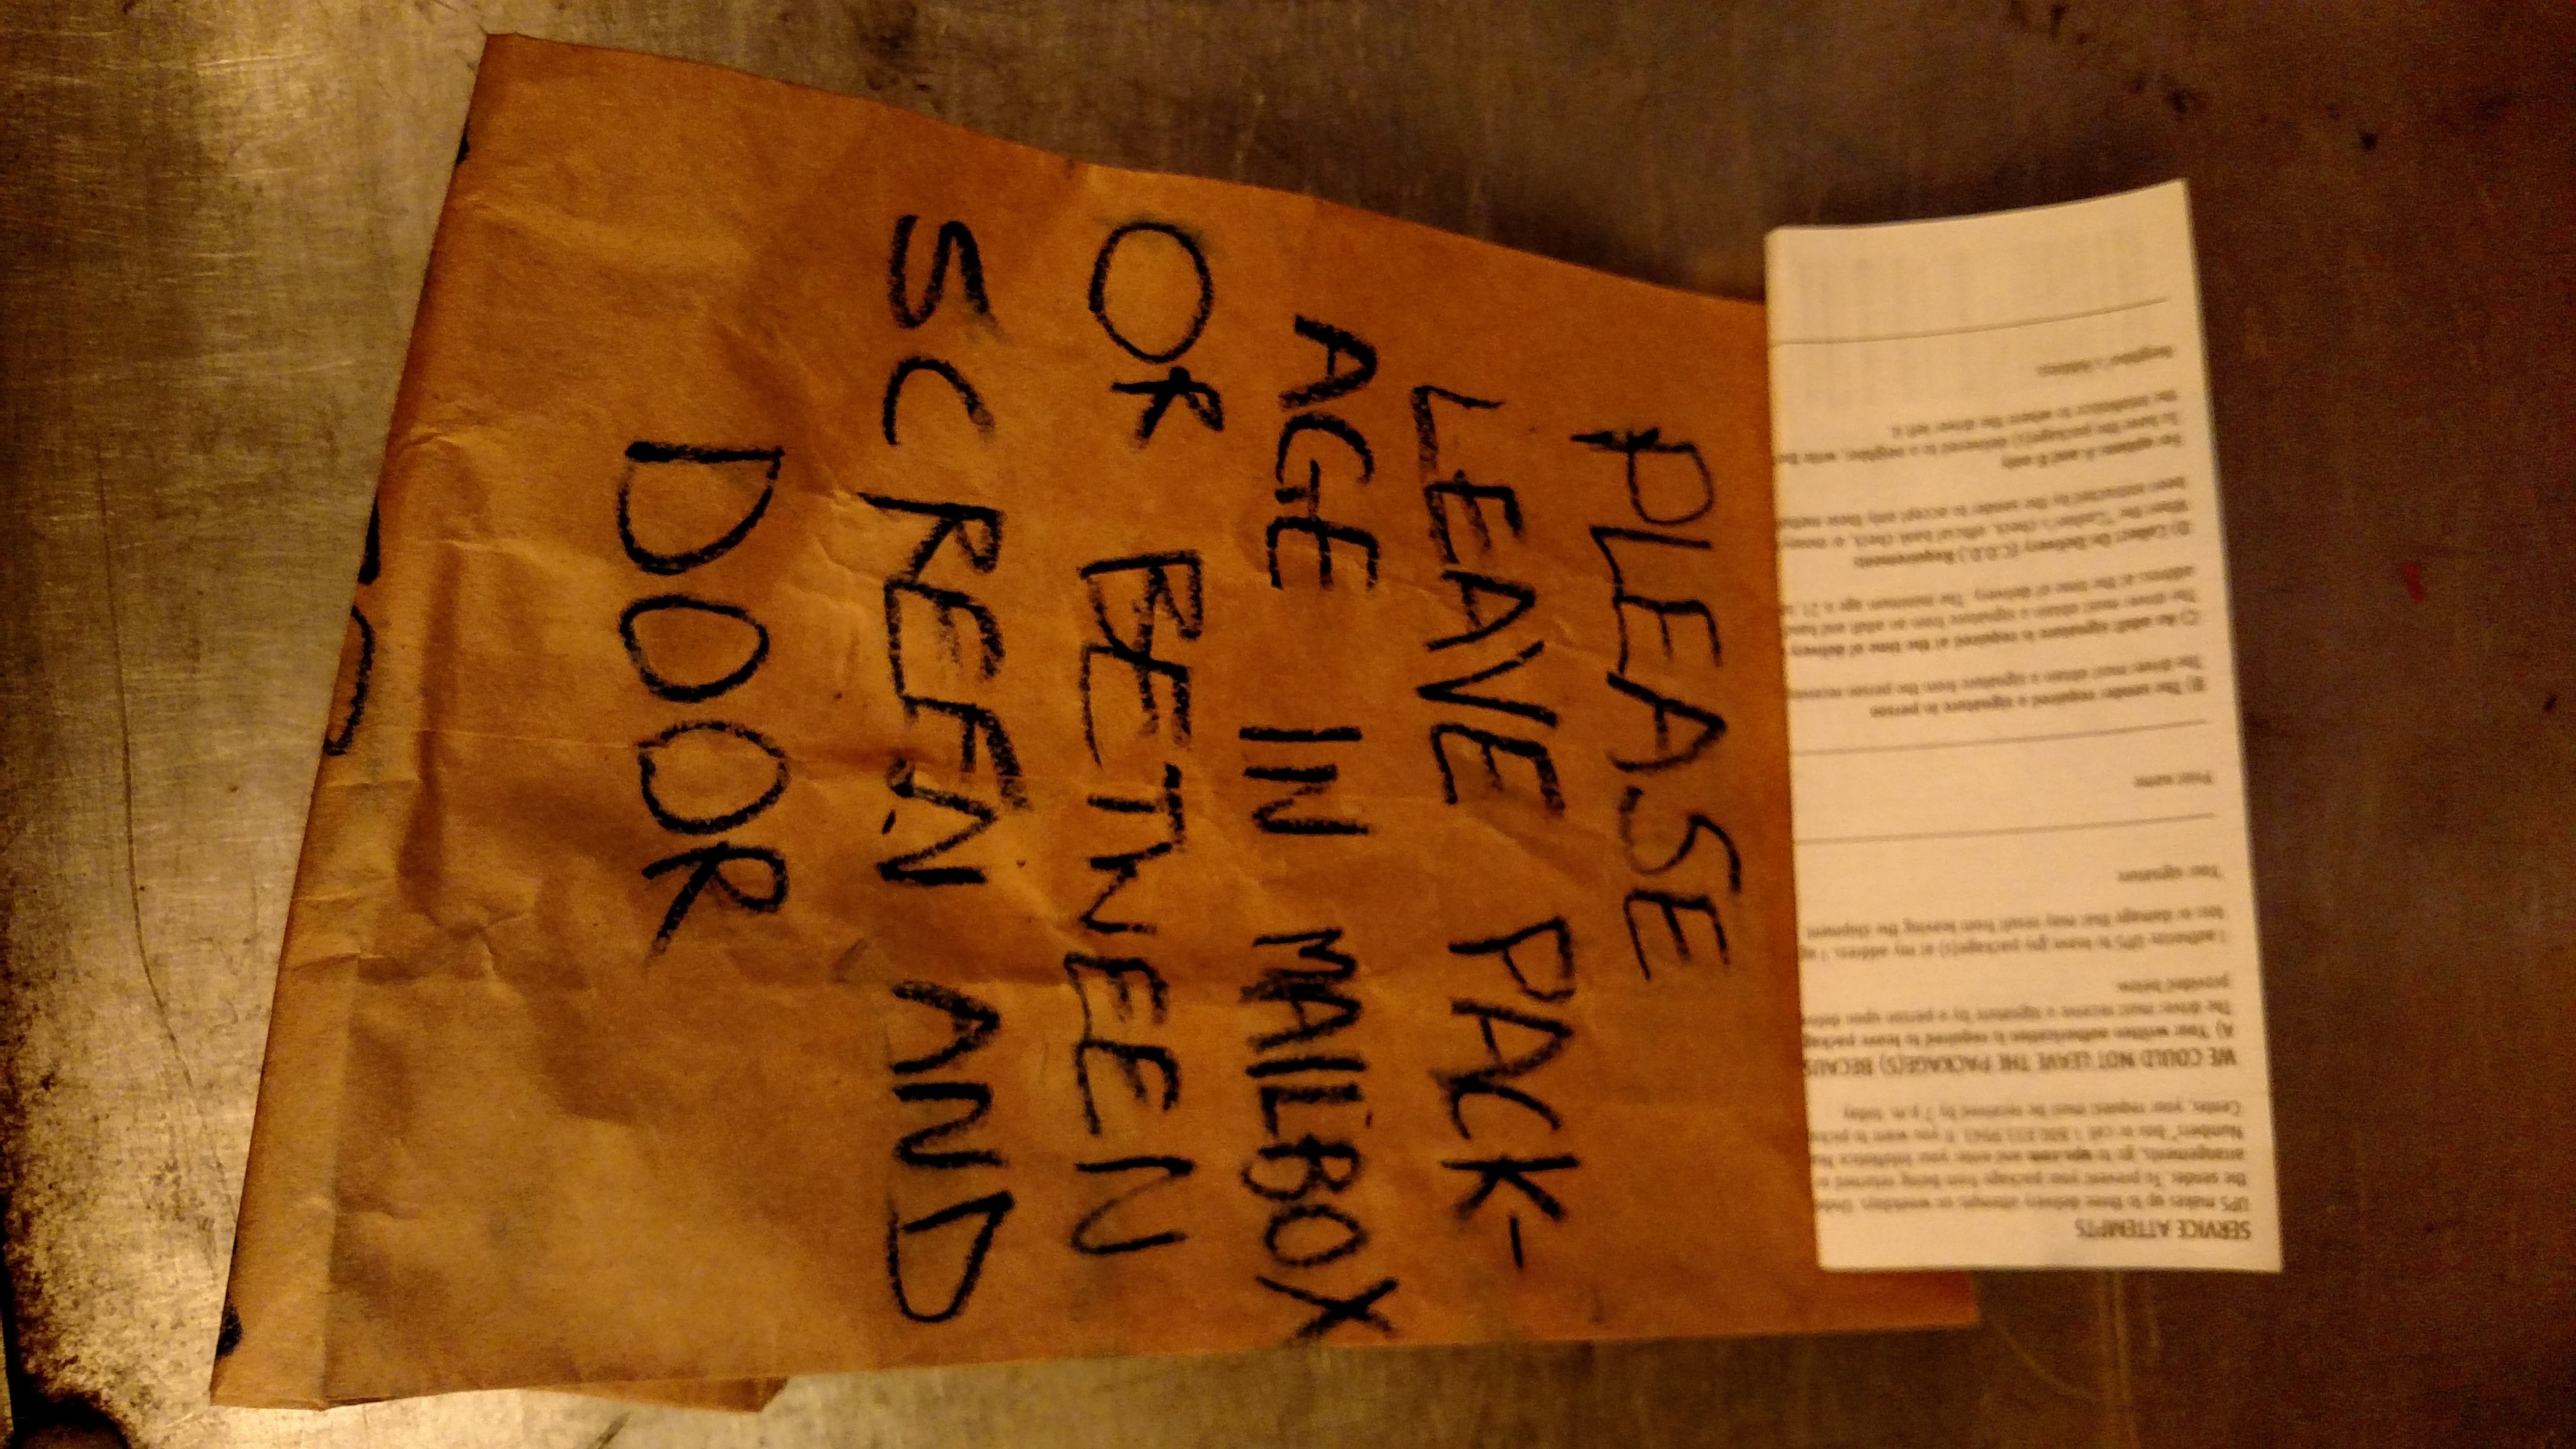 PLEASE
LEAVE PACK-
AGE IN MAILBOX
OR BETWEEN
SCREEN AND
DOOR
SERVICE ATTEMPTS
UPS makes up to three delivery attempts, on weekdays.
the sender. To prevent your package from being returned
arrangements, go to ups.com and enter your InfoNotice
Number, or call 1 800 833 9943. If you want to
Center, your request must be received by 7 p.m. today.
WE COULD NOT LEAVE THE PACKAGE(S)
A) Your written authorization is required to leave package
The driver must receive a signature by a person upon
provided below.
I authorize UPS to leave package(s) at my address. I
loss or damage that may result from leaving the shipment
Your signature
Print name
B) The sender required a signature in person
The driver must obtain a signature from the person
C) An adult signature is required at the time of delivery
The driver must obtain a signature from an adult and
address at the time of delivery. The minimum age is 21
D) Collect On Delivery (C.O.D.) Requirements
When the "Cashier's check, official bank check, or money
been instructed by the sender to accept only these
For options A and B only
To have the package(s) delivered to a neighbor, write the
the InfoNotice to where the driver left it.
Neighbor's Address